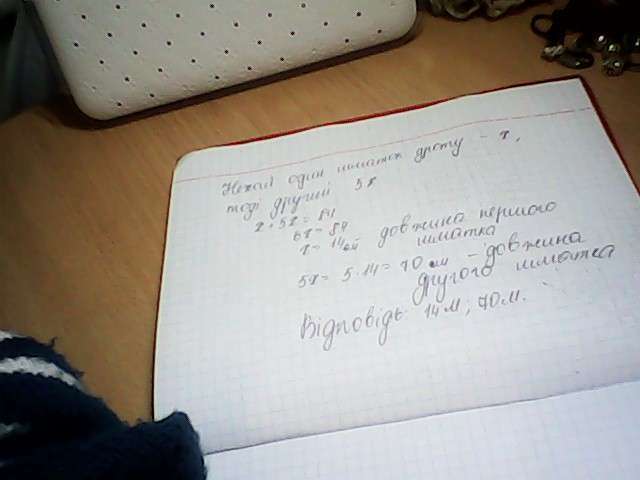 Нехай один шматок дроту - x,
тоді другий 5x
x+5x=84
6x=84
x=14 довжина першого
шматка
5x= 5·14= 70 м - довжина
другого шматка
Відповідь: 14м; 70м.